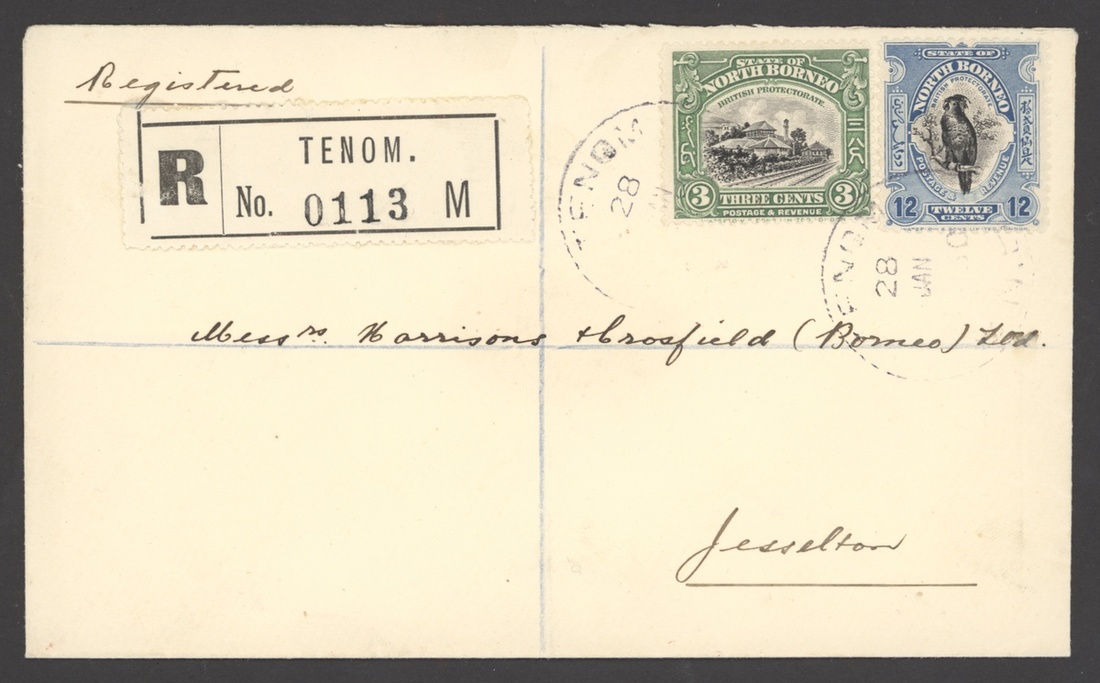 Registered
R
TENOM.
No. 0113 M
STATE OF
NORTH BORNEO
BRITISH PROTECTORATE
3 THREE CENTS 3
POSTAGE & REVENUE
STATE OF
NORTH BORNEO
BRITISH PROTECTORATE
POSTAGE & REVENUE
12 TWELVE CENTS 12
TENOM
28
TENOM
28
JAN
Messrs. Harrisons & Crosfield (Borneo) Ltd.
Jesselton